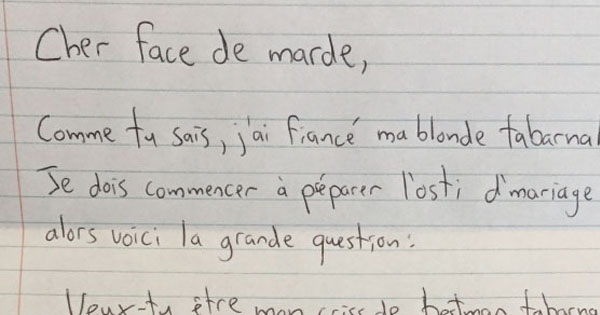 Cher face de marde,
Comme tu sais, j'ai fiancé ma blonde tabarna
Je dois commencer à préparer l'osti d'mariage
alors voici la grande question:
Veux-tu être mon criss de bestman tabarna